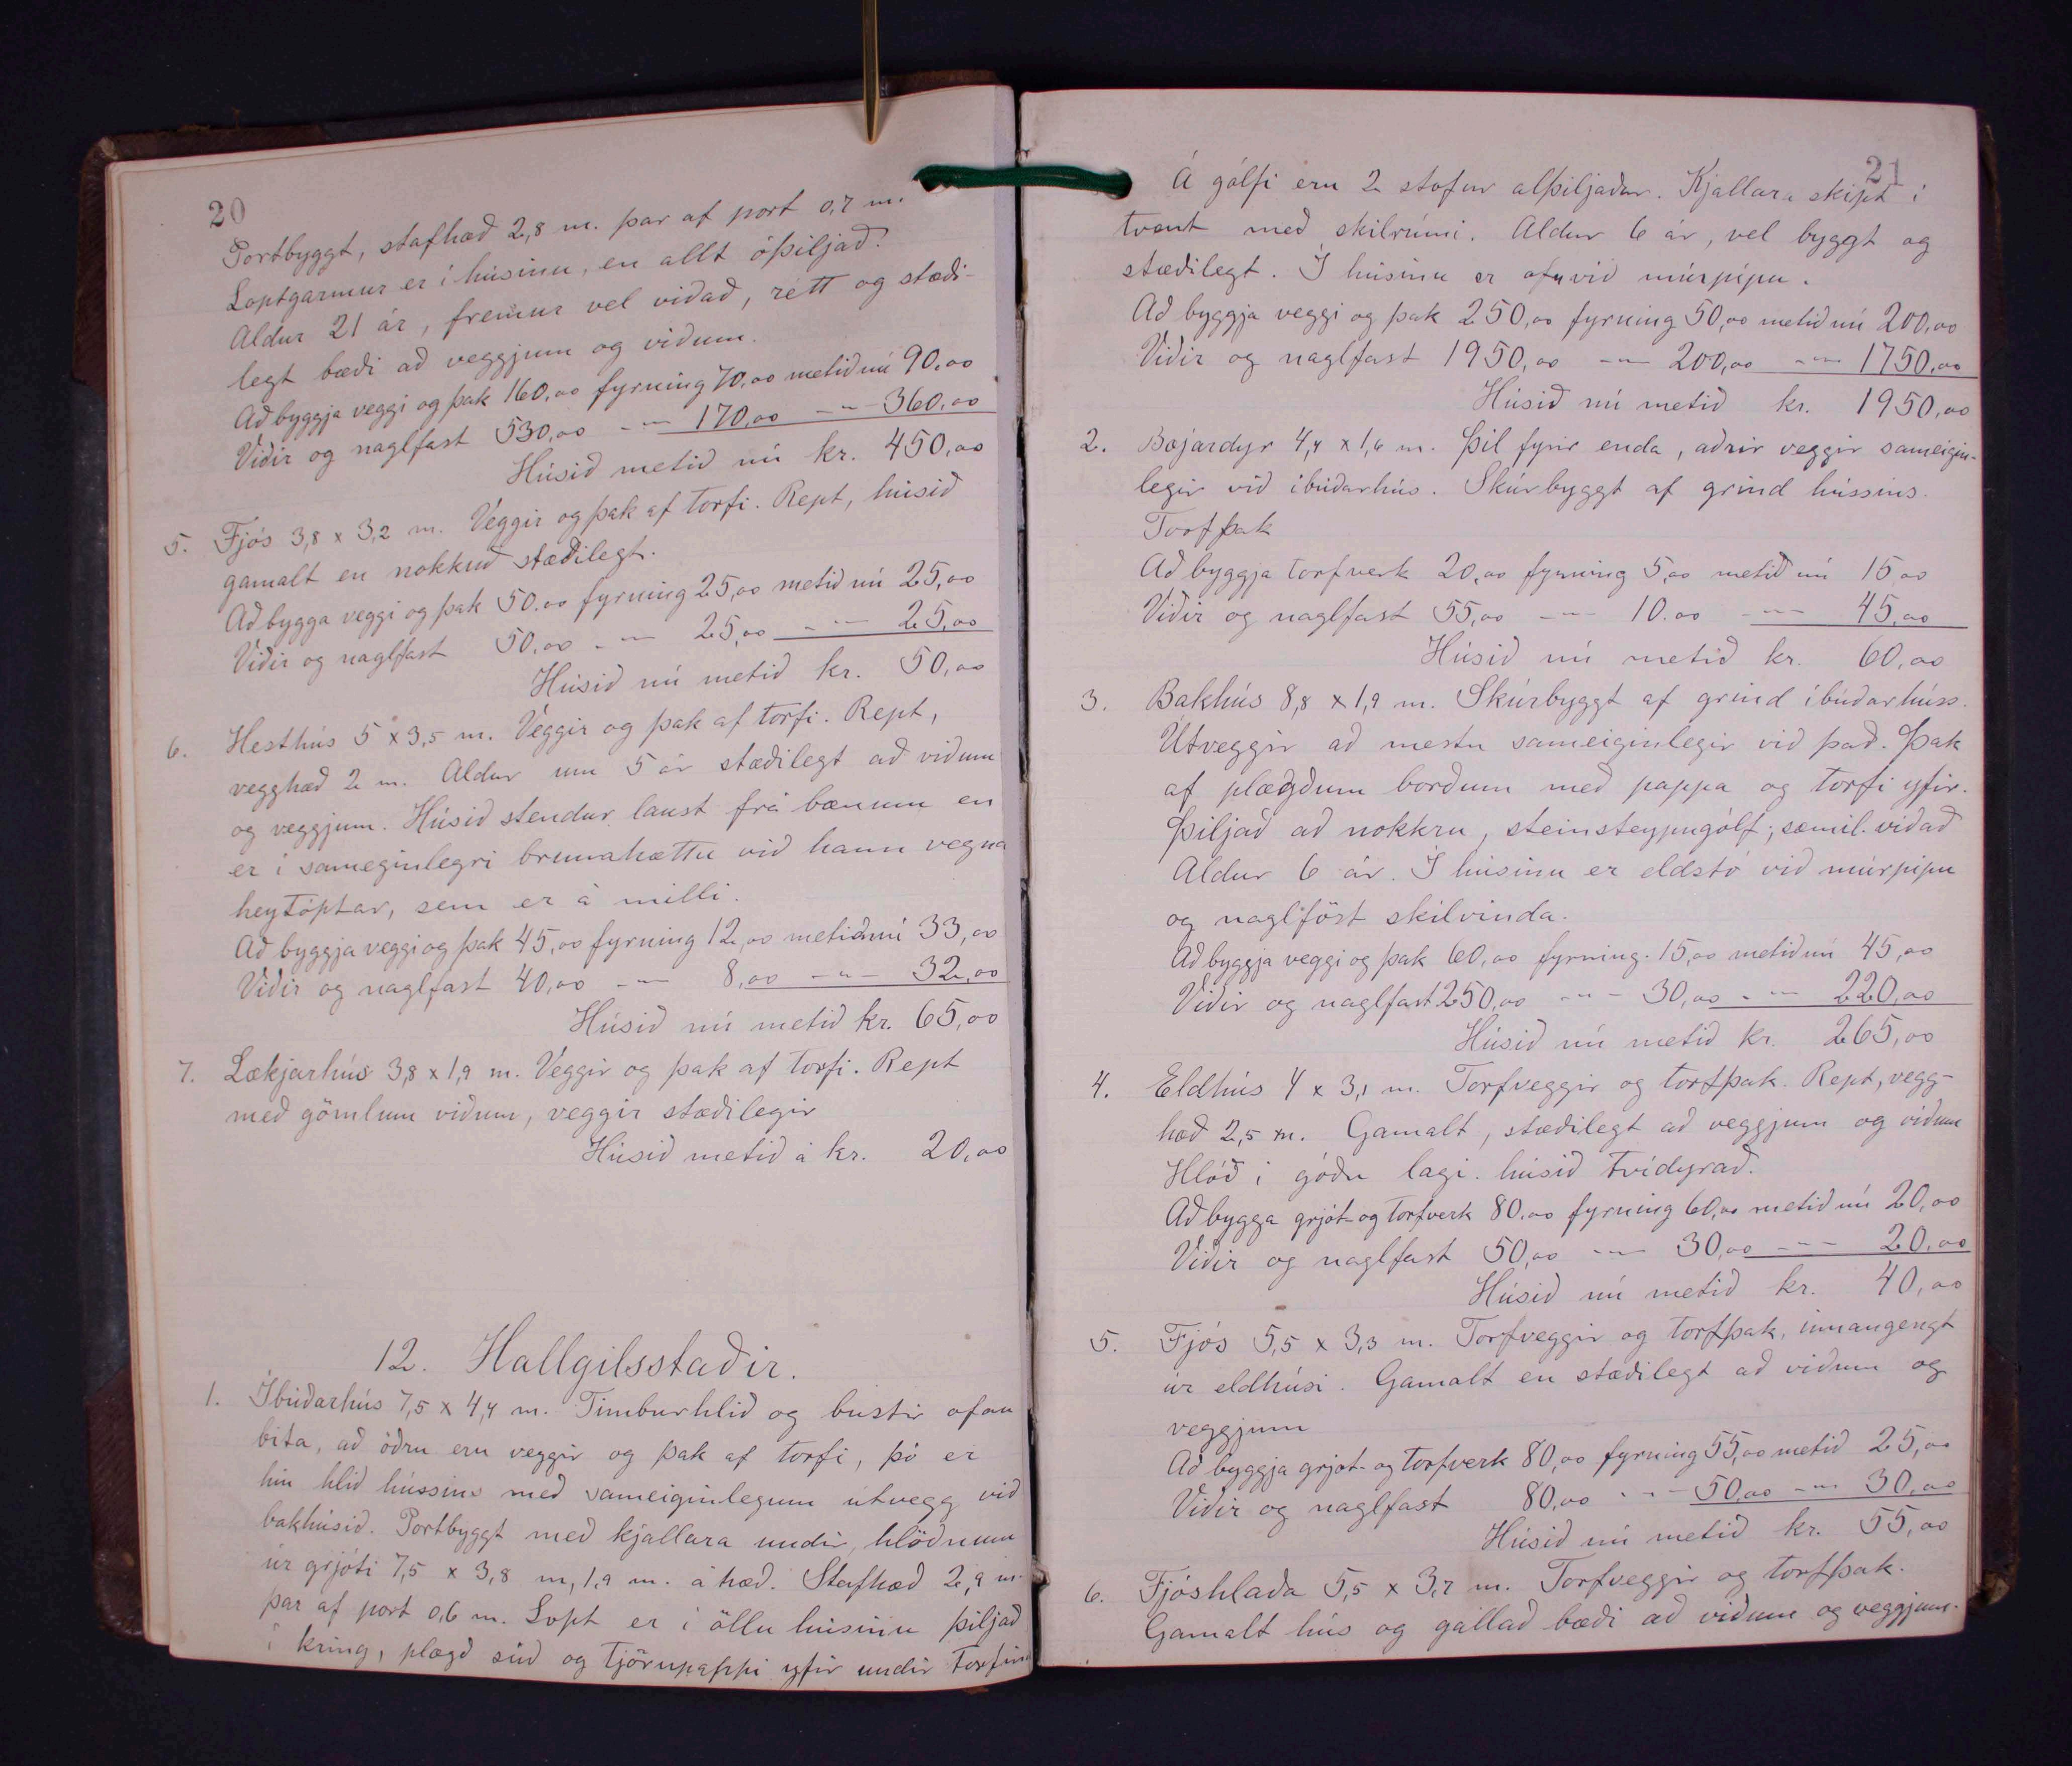 20
Portbyggt, stafhæð 2,8 m. þar af port 0,7 m.
Loptgarmur er í húsinu, en allt óþiljað.
Aldur 21 ár, fremur vel viðað, rétt og stæði-
legt bæði að veggjum og viðum.
Að byggja veggi og þak 160,00 fyrning 70,00 metið nú 90,00
Viðir og naglfast 530,00 -"- 170,00 -"- 360,00
Húsið metið nú kr. 450,00
5. Fjós 3,8 x 3,2 m. Veggir og þak af torfi. Rept, húsið
gamalt en nokkuð stæðilegt.
Að bygga veggi og þak 50,00 fyrning 25,00 metið nú 25,00
Viðir og naglfast 50,00 -"- 25,00 -"- 25,00
Húsið nú metið kr. 50,00
6. Hesthús 5 x 3,5 m. Veggir og þak af torfi. Rept,
vegghæð 2 m. Aldur um 5 ár stæðilegt að viðum
og veggjum. Húsið stendur laust frá bænum en
er í sameginlegri brunahættu við hann vegna
heytóptar, sem er á milli.
Að byggja veggi og þak 45,00 fyrning 12,00 metið nú 33,00
Viðir og naglfast 40,00 -"- 8,00 -"- 32,00
Húsið nú metið kr. 65,00
7. Lækjarhús 3,8 x 1,9 m. Veggir og þak af torfi. Rept
með gömlum viðum, veggir stæðilegir
Húsið metið á kr. 20,00
12. Hallgilsstaðir.
1. Íbúðarhús 7,5 x 4,4 m. Timburhlið og bustir ofan
bita, að öðru eru veggir og þak af torfi, þó er
hin hlið hússins með sameiginlegum útvegg við
bakhúsið. Portbyggt með kjallara undir, hlöðnum
úr grjóti 7,5 x 3,8 m, 1,9 m. á hæð. Stafhæð 2,9 m.
þar af port 0,6 m. Lopt er í öllu húsinu þiljað
í kring, plægð súð og tjörupappi yfir undir torfinu
21
Á gólfi eru 2 stofur alþiljaðar. Kjallara skipt í
tvent með skilrúmi. Aldur 6 ár, vel byggt og
stæðilegt. Í húsinu er ofn við múrpípu.
Að byggja veggi og þak 250,00 fyrning 50,00 metið nú 200,00
Viðir og naglfast 1950,00 -"- 200,00 -"- 1750,00
Húsið nú metið kr. 1950,00
2. Bæjardyr 4,4 x 1,6 m. Þil fyrir enda, aðrir veggir sameigin-
legir við íbúðarhús. Skúrbyggt af grind hússins.
Torfþak
Að byggja torfverk 20,00 fyrning 5,00 metið nú 15,00
Viðir og naglfast 55,00 -"- 10.00 -"- 45,00
Húsið nú metið kr. 60,00
3. Bakhús 8,8 x 1,9 m. Skúrbyggt af grind íbúðarhúss.
Útveggir að mestu sameiginlegir við það. Þak
af plægðum borðum með pappa og torfi yfir.
Þiljað að nokkru, steinsteypugólf, sæmil. viðað
Aldur 6 ár. Í húsinu er eldstó við múrpípu
og naglföst skilvinda.
Að byggja veggi og þak 60,00 fyrning. 15,00 metið nú 45,00
Viðir og naglfast 250,00 -"- 30,00 -"- 220,00
Húsið nú metið kr. 265,00
4. Eldhús 4 x 3,1 m. Torfveggir og torfþak. Rept, vegg-
hæð 2,5 m. Gamalt, stæðilegt að veggjum og viðum
Hlóð í góðu lagi. húsið tvídyrað.
Að bygga grjót- og torfverk 80,00 fyrning 60,00 metið nú 20,00
Viðir og naglfast 50,00 -"- 30,00 -"- 20,00
Húsið nú metið kr. 40,00
5. Fjós 5,5 x 3,3 m. Torfveggir og torfþak, innangengt
úr eldhúsi. Gamalt en stæðilegt að viðum og
veggjum
Að byggja grjót- og torfverk 80,00 fyrning 55,00 metið 25,00
Viðir og naglfast 80,00 -"- 50,00 -"- 30,00
Húsið nú metið kr. 55,00
6. Fjóshlaða 5,5 x 3,7 m. Torfveggir og torfþak.
Gamalt hús og gallað bæði að viðum og veggjum.